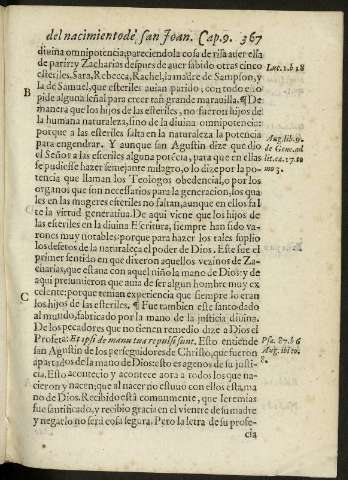 del nacimiento de san Joan. Cap. 9. 367
diuina omnipotencia, pareciendola cosa de risa auer ella
de parir y Zacharias despues de auer sabido otras cinco
esteriles, Sara, Rebecca, Rachel, la madre de Sampson, y
la de Samuel, que esteriles auian parido, con todo esso
pide alguna señal para creer tan grande marauilla. ¶ De
manera que los hijos de las esteriles, no fueron hijos de
la humana naturaleza, sino de la diuina omnipotencia:
porque a las esteriles falta en la naturaleza la potencia
para engendrar. Y aunque san Agustin dize que dio
el Señor a las esteriles alguna potẽcia, para que en ellas
se pudiesse hazer semejante milagro, o lo dize por la po-
tencia que llaman los Teologos obedencial, o por los
organos que son necessarios para la generacion, los qua
les en las mugeres esteriles no faltan, aunque en ellos fal
te la virtud generatiua. De aqui viene que los hijos de
las esteriles en la diuina Escritura, siempre han sido va-
rones muy notables: porque para hazer los tales suplio
los defetos de la naturaleza el poder de Dios. Este fue el
primer sentido en que dixeron aquellos vezinos de Za-
charias, que estaua con aquel niño la mano de Dios: y de
aqui presumieron que auia de ser algun hombre muy ex
celente: porque tenian experiencia que siempre lo eran
los hijos de las esteriles. ¶ Fue tambien este santo dado
al mundo, fabricado por la mano de la justicia diuina.
De los pecadores que no tienen remedio dize a Dios el
Profeta: Et ipsi de manu tua repulsi sunt. Esto entiende
san Agustin de los perseguidores de Christo, que fueron
apartados de la mano de Dios: esto es agenos de su justi-
cia. Esto acontecio y acontece aora a todos los que na-
cieron y nacen; que al nacer no estuuo con ellos esta ma
no de Dios. Recibido está comunmente, que Ieremias
fue santificado, y recibio gracia en el vientre de su madre
y negarlo no será cosa segura. Pero la letra de su profe-
cia
Luc. 1. b 18
B
Aug. lib. 9.
de Gene. ad
lit. ca. 17. to
mo 3.
C
Psa. 87. b 6
Aug. ibi to.
8.